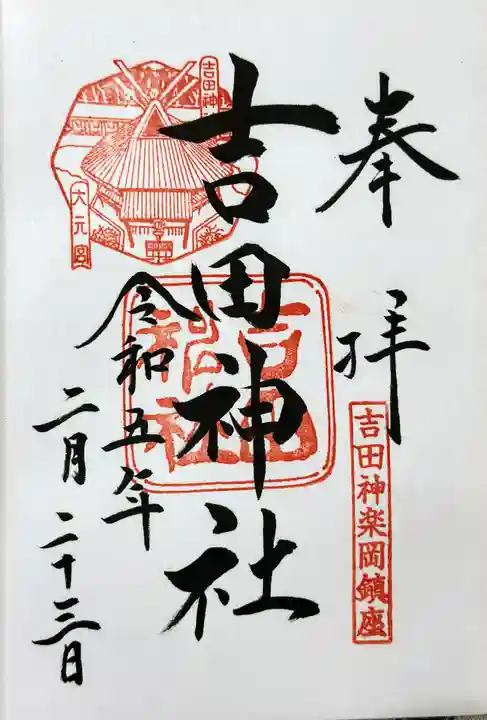 奉拝
吉田神楽岡鎮座
吉田神社
吉田神社
令和五年
二月二十三日
吉田神
大元宮